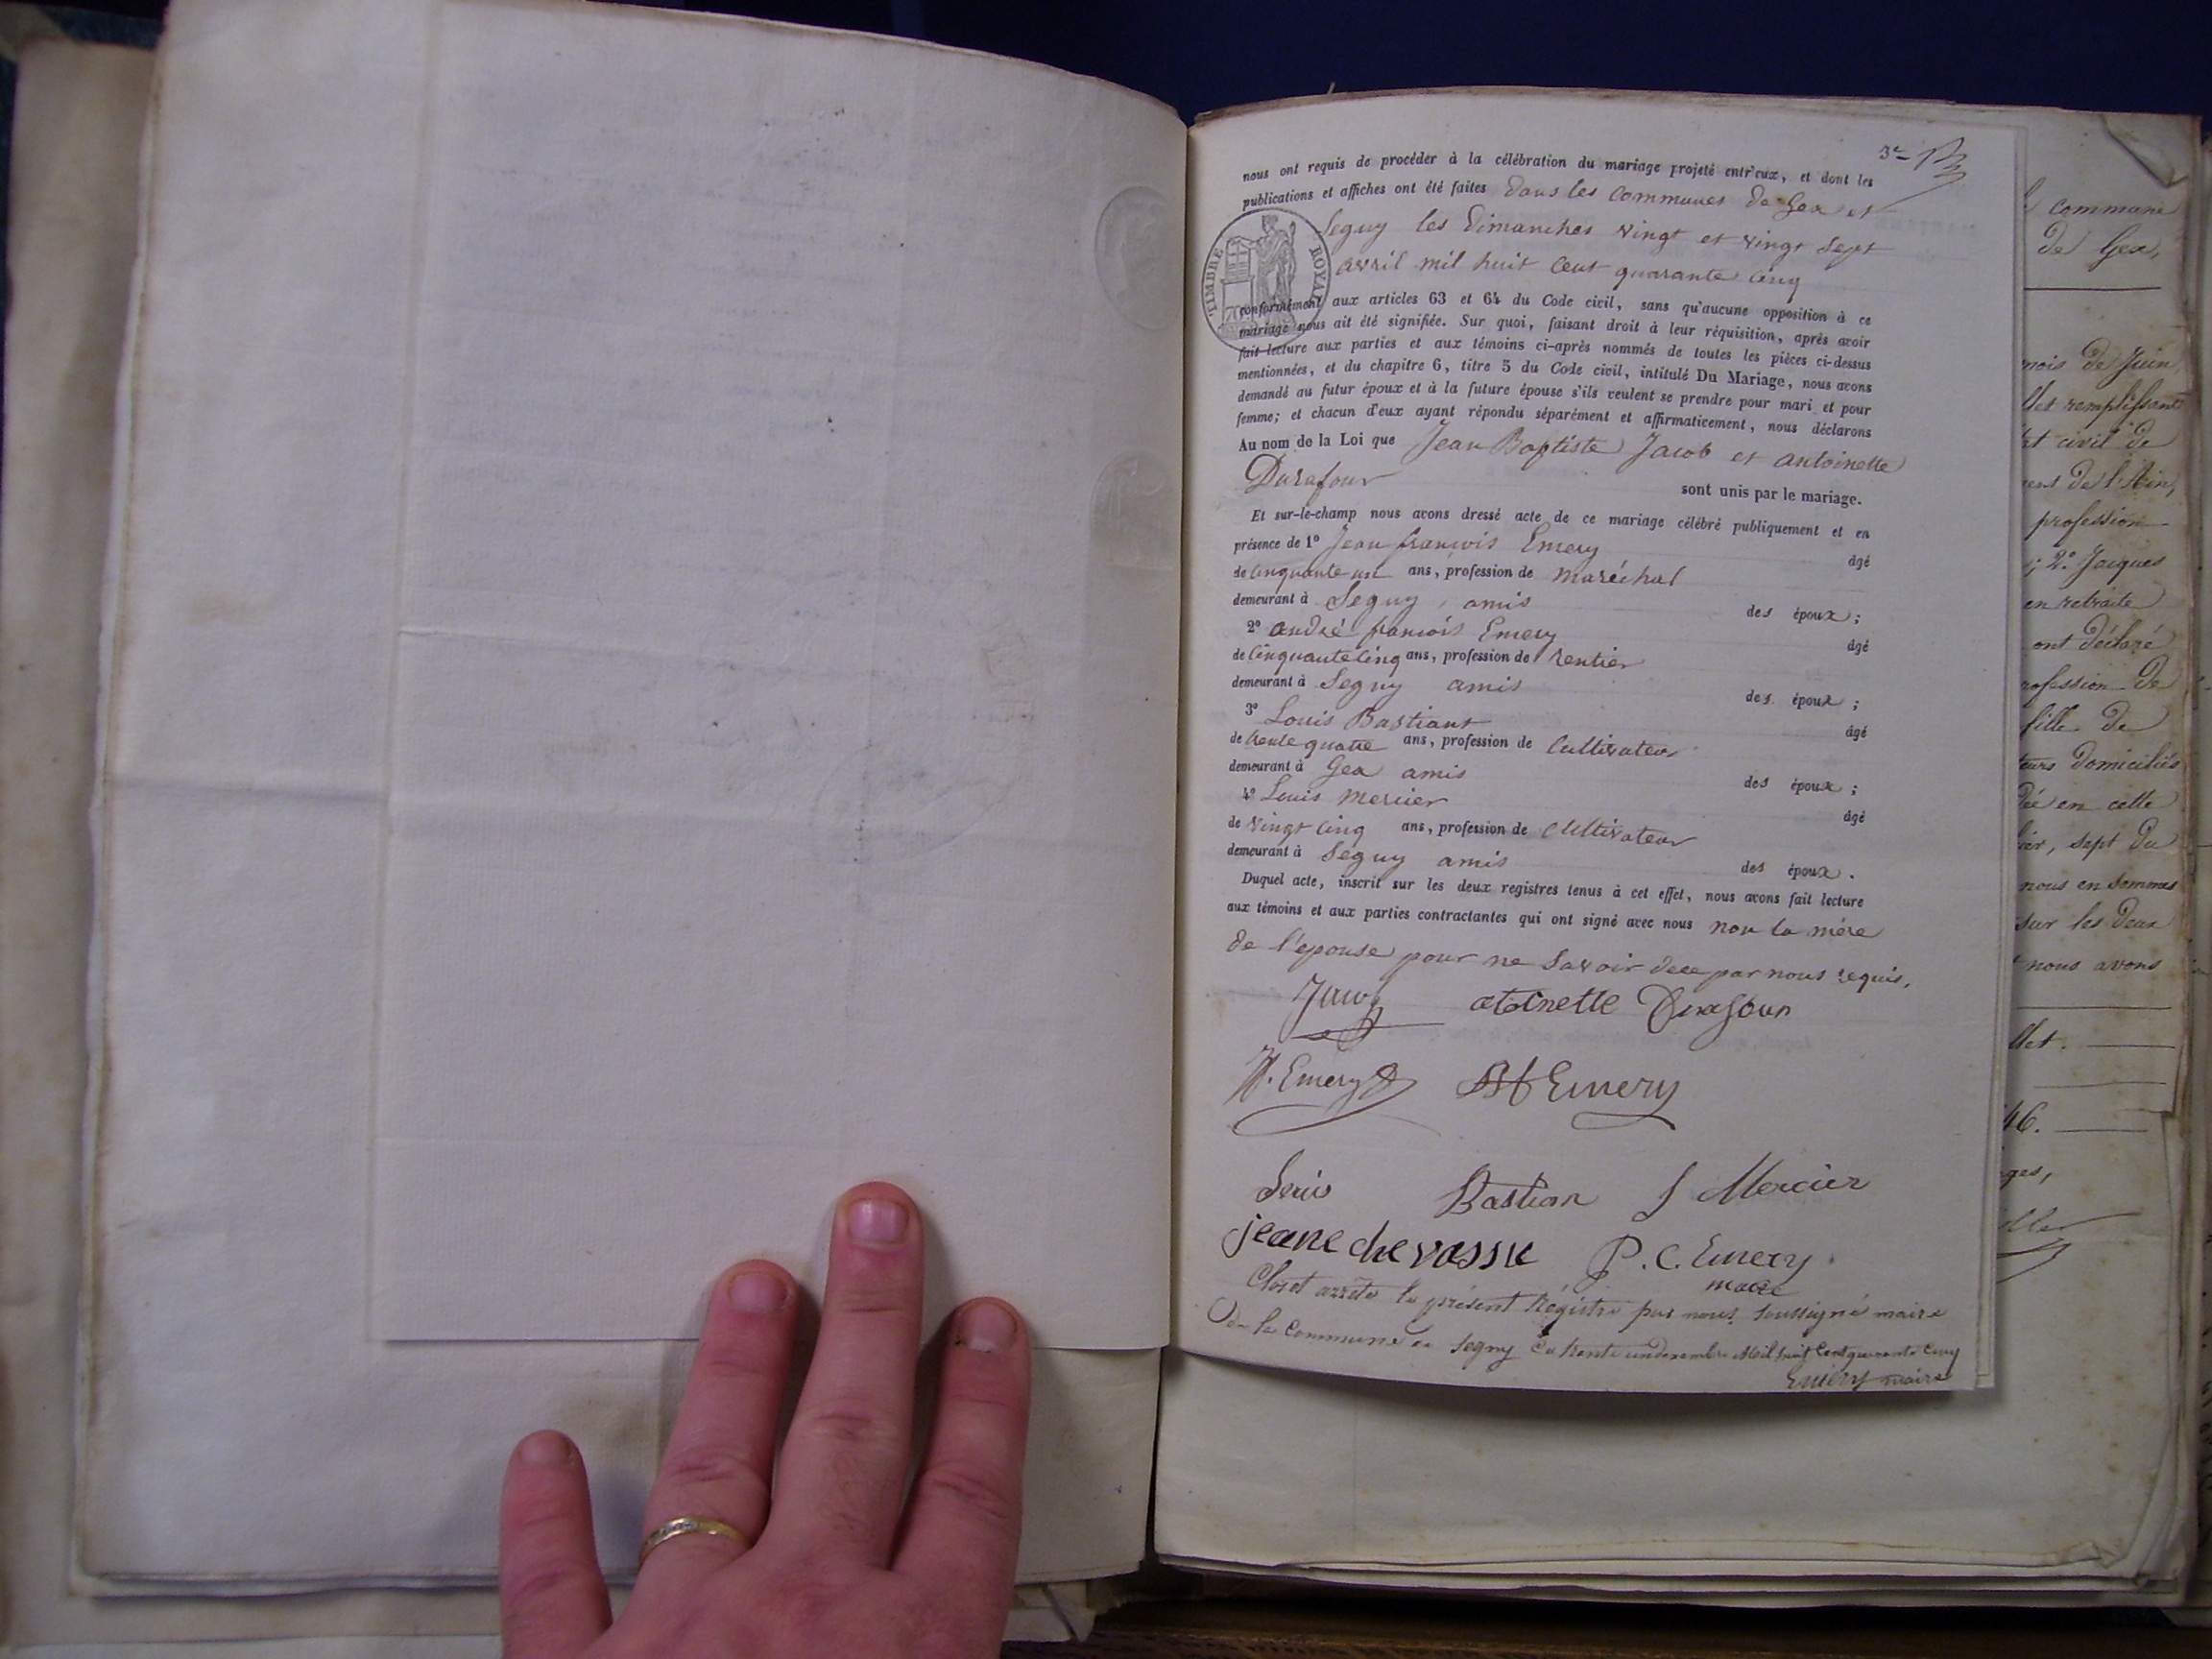 3e
nous ont requis de procéder à la célébration du mariage projeté entr'eux, et dont les
publications et affiches ont été faites dans les Communes de Gex et
Segny les Dimanches vingt et vingt Sept
avril mil huit Cent quarante Cinq
TIMBRE ROYAL
conformément aux articles 63 et 64 du Code civil, sans qu'aucune opposition à ce
mariage nous ait été signifiée. Sur quoi, faisant droit à leur réquisition, après avoir
fait lecture aux parties et aux témoins ci-après nommés de toutes les pièces ci-dessus
mentionnées, et du chapitre 6, titre 5 du Code civil, intitulé Du Mariage, nous avons
demandé au futur époux et à la future épouse s'ils veulent se prendre pour mari et pour
femme; et chacun d'eux ayant répondu séparément et affirmativement, nous déclarons
Au nom de la Loi que Jean Baptiste Jacob et antoinette
Durafour sont unis par le mariage.
Et sur-le-champ nous avons dressé acte de ce mariage célébré publiquement et en
présence de 1º Jean françois Emery âgé
de Cinquante un ans, profession de maréchal
demeurant à Segny, amis des époux;
2º andré françois Emery âgé
de Cinquante Cinq ans, profession de rentier
demeurant à Segny amis des époux;
3º Louis Bastiant âgé
de trente quatre ans, profession de Cultivateur
demeurant à Gex amis des époux;
4º Louis mercier âgé
de vingt Cinq ans, profession de Cultivateur
demeurant à Segny amis des époux.
Duquel acte, inscrit sur les deux registres tenus à cet effet, nous avons fait lecture
aux témoins et aux parties contractantes qui ont signé avec nous non la mère
de l'epouse pour ne Savoir de ce par nous requis.
Jacob atoinette Durafour
Emery Emery
Louis Bastian L Mercier
jeane chevassu P. C. Emery
maire
Clos et arrêté le présent Régistre par nous soussigné maire
de la Commune de Segny Ce trente un decembre Mil huit Cent quarante Cinq
Emery maire
commune
de Gex,
mois de Juin
llet remplissant
at civil de
de l'Ain,
profession
; 2º Jacques
en retraite
ont déclaré
rofession de
fille de
teurs domiciliés
en cette
ier, sept du
nous en sommes
sur les deux
nous avons
llet.
46.
ges,